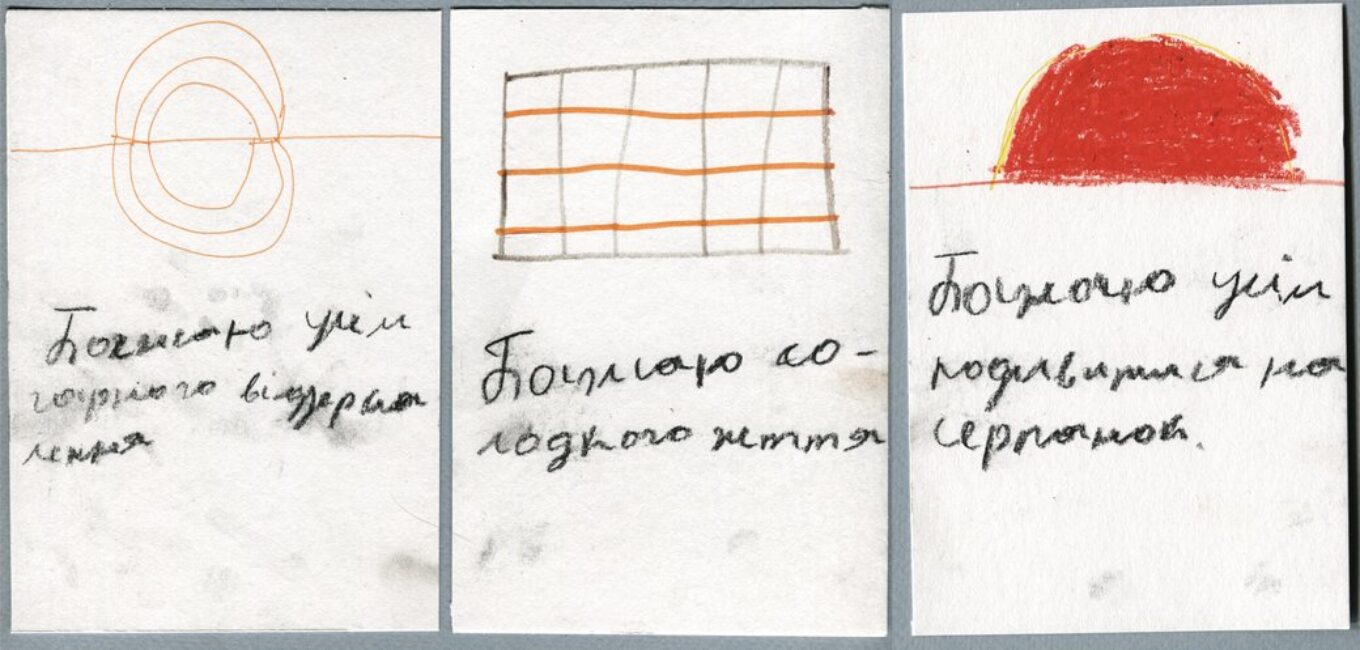 Бажаю усім
гарного віддзерка
лення
Бажаю со-
лодкого життя
Бажаю усім
подивитися на
серпанок.